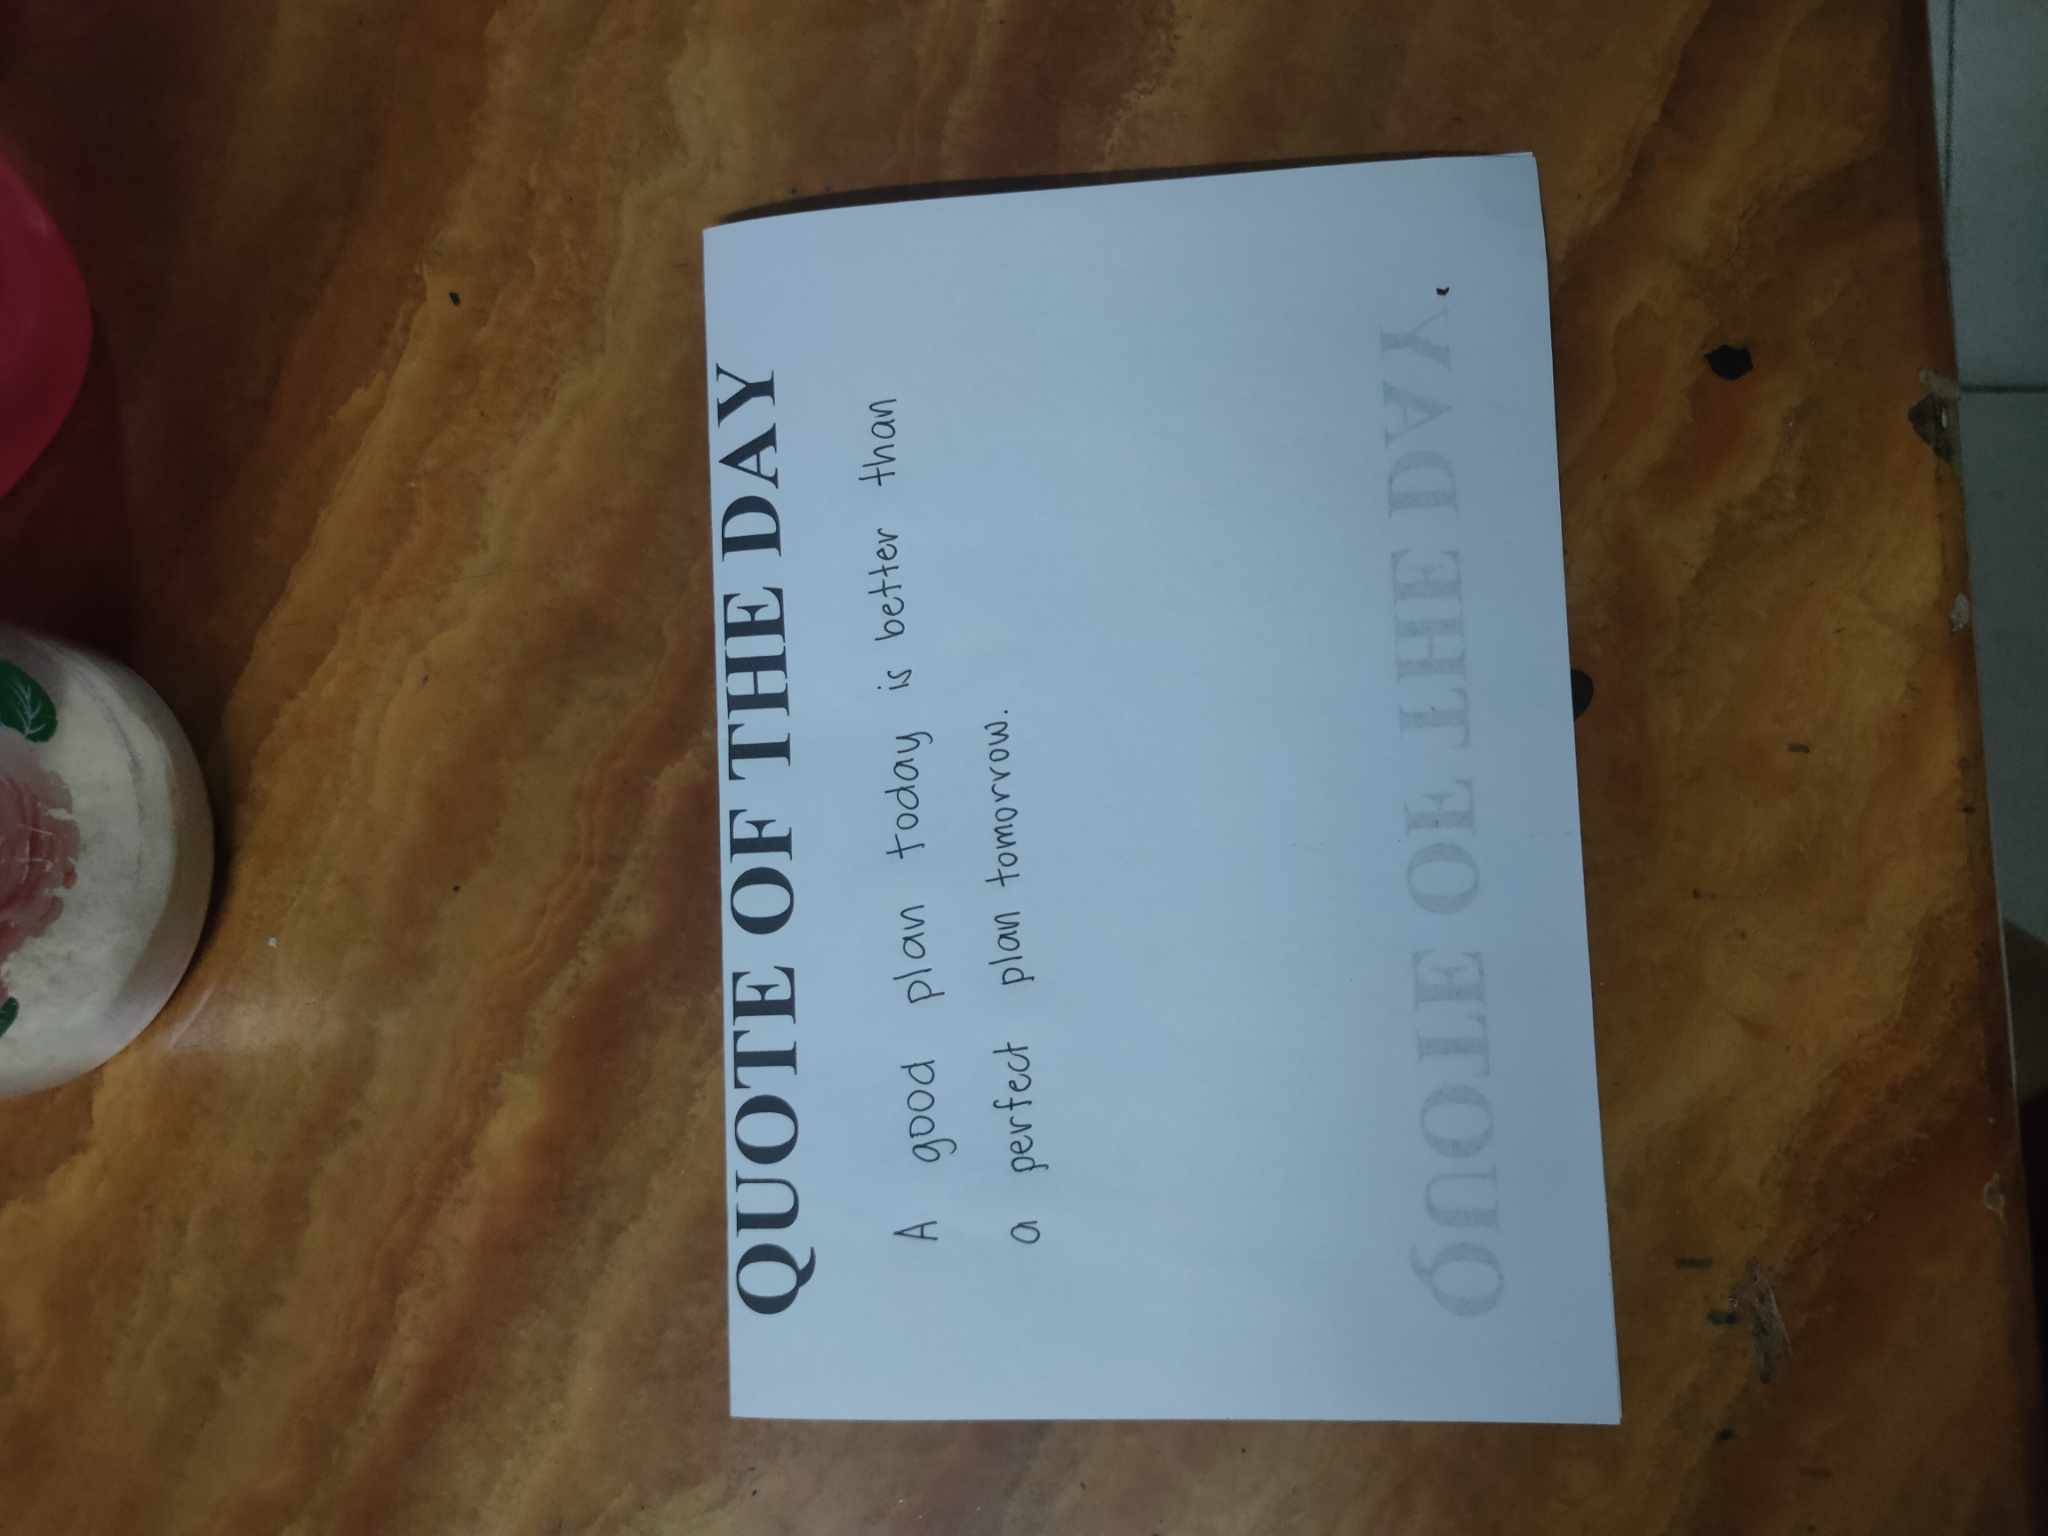 QUOTE OF THE DAY
A good plan today is better than
a perfect plan tomorrow.
QUOTE OF THE DAY